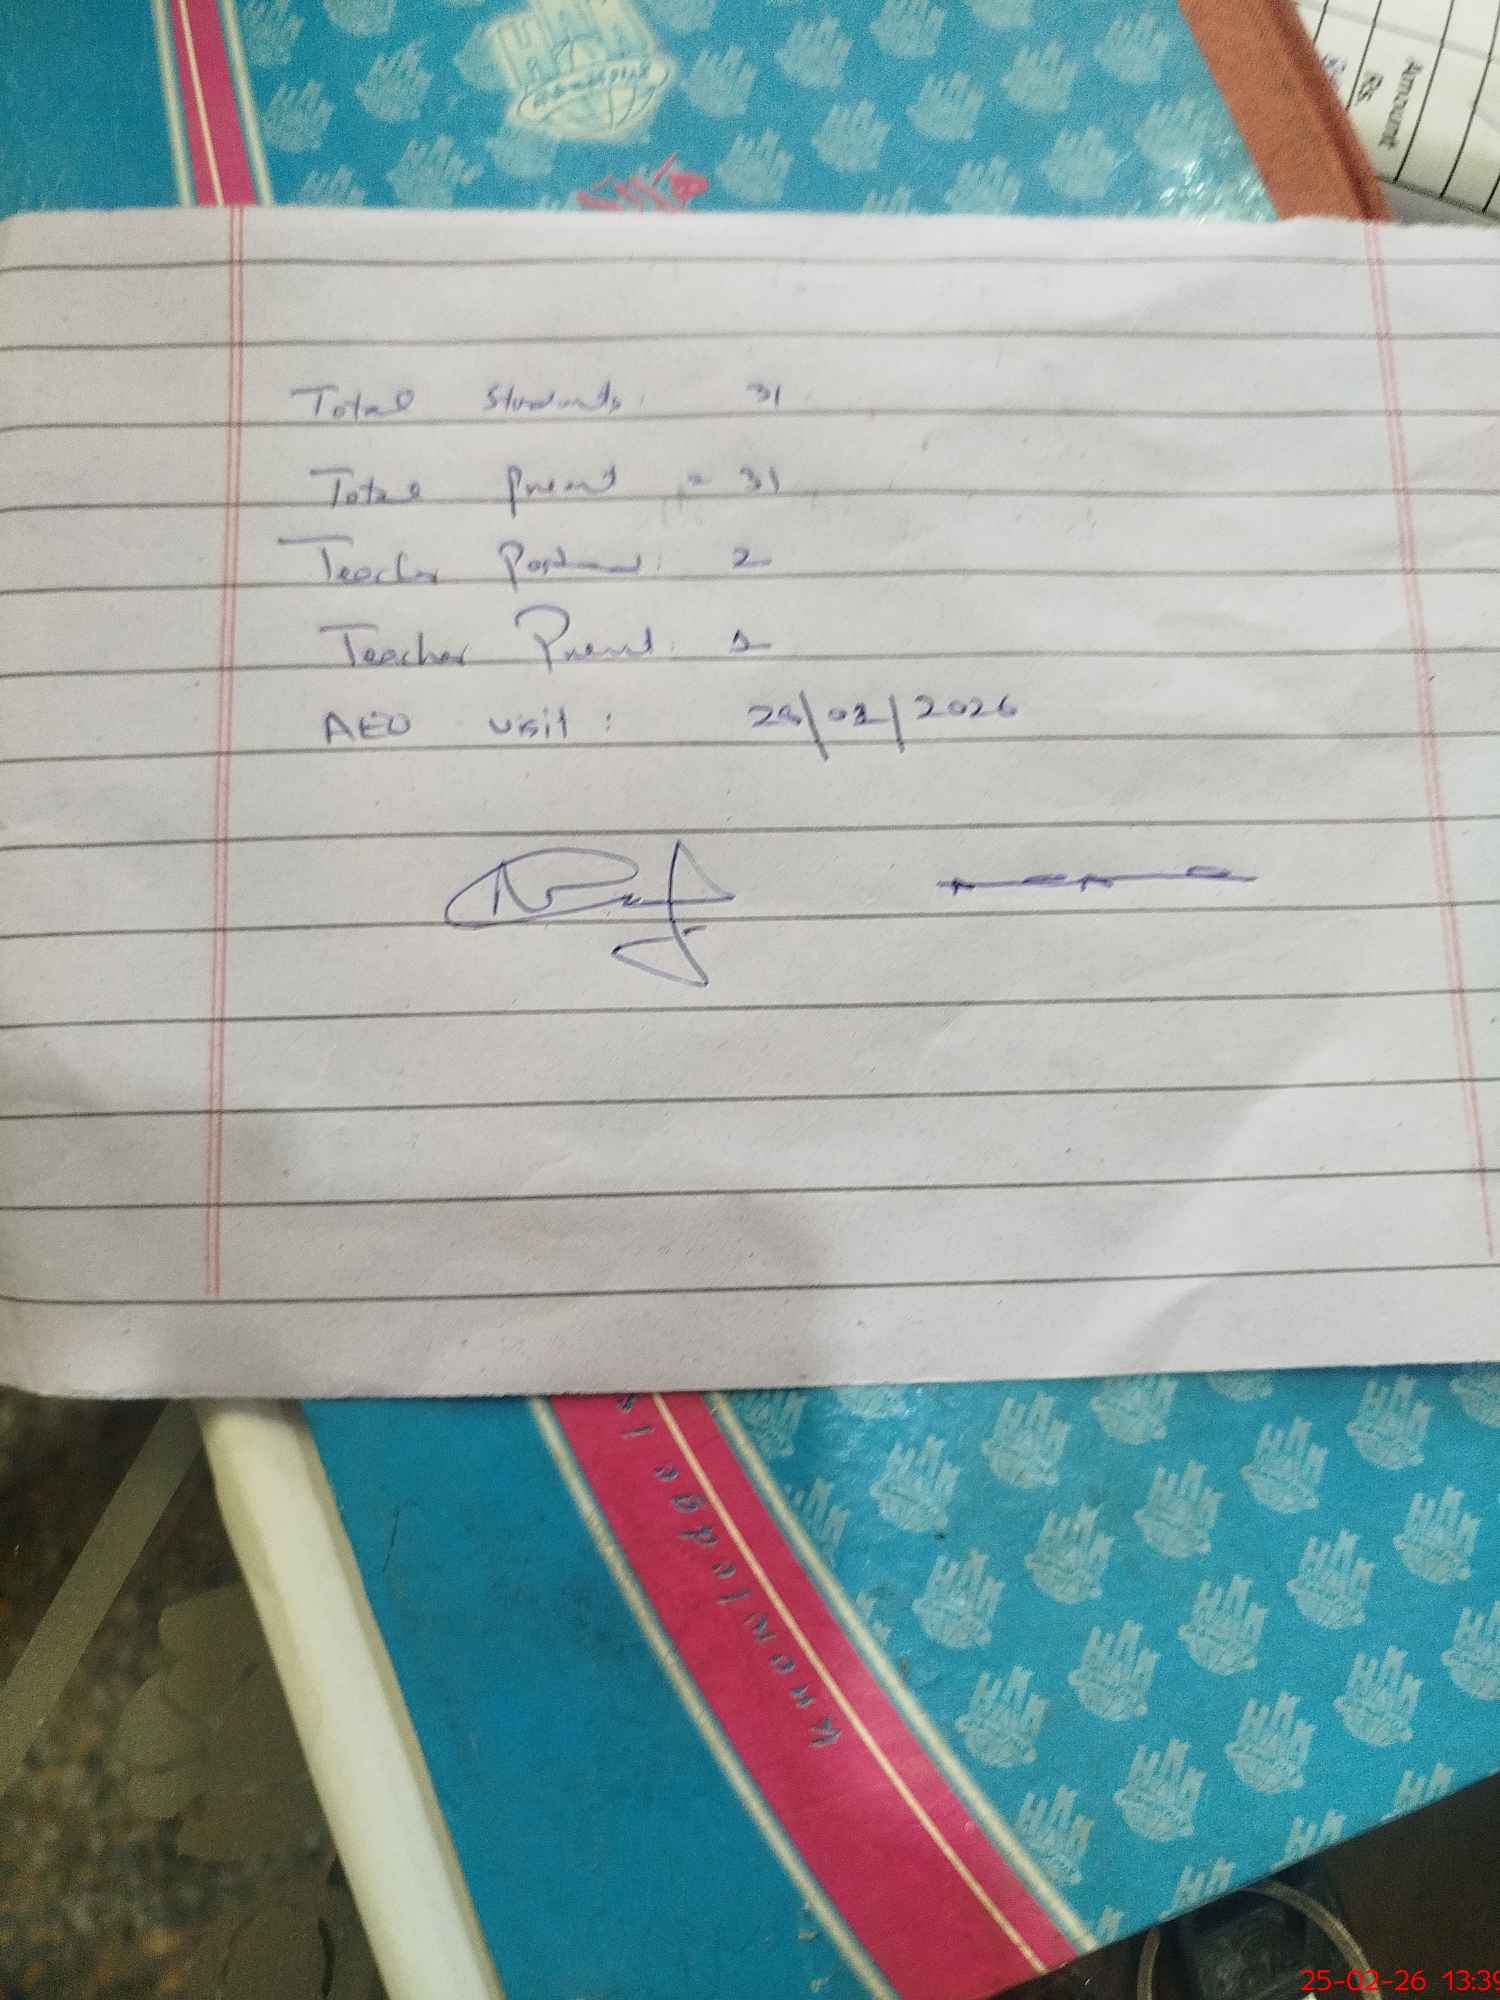 Amount
Rs
Total Students: 31
Total Present = 31
Teacher : 2
Teacher Present: 1
AEO visit: /2026
Knowledge is
25-02-26 13:39